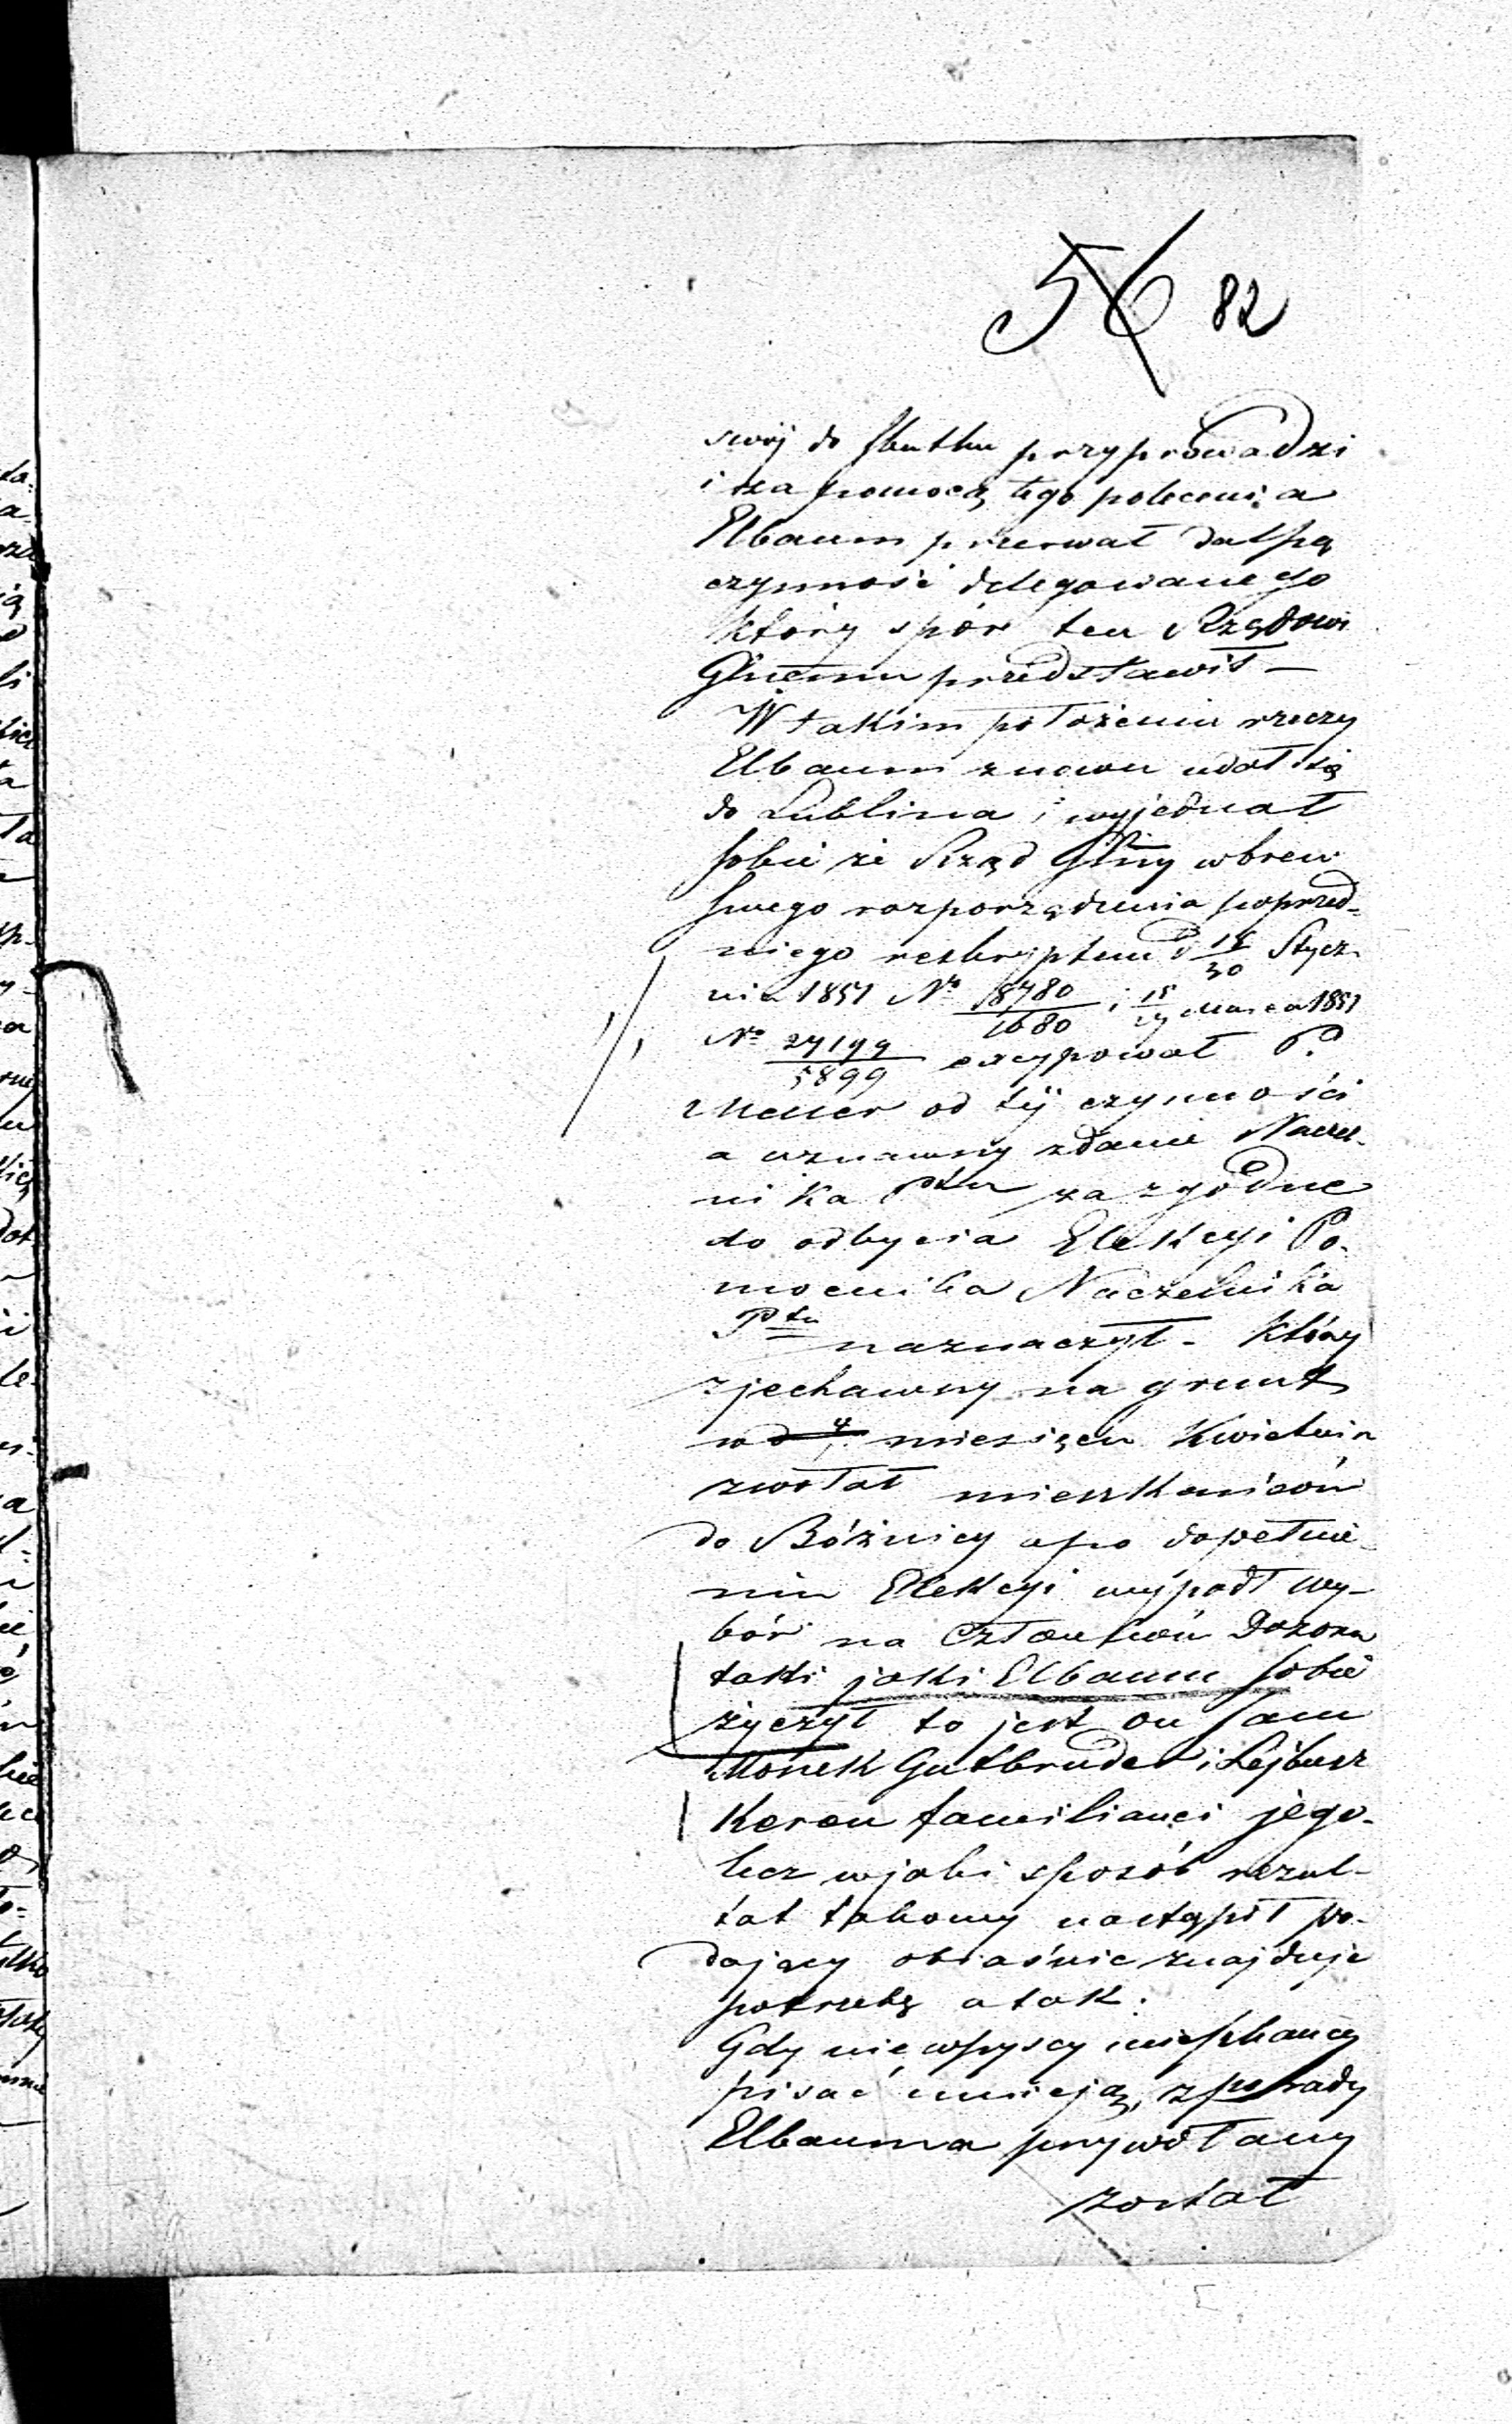 56 82
swój do skutku przyprowadzi
i za pomocą tego polecenia
Elbaum przerwał dalszą
czynność delegowanego
który spór ten Rządowi
Gnemu przedstawił —
W takim położeniu rzeczy
Elbaum znowu udał się
do Lublina i wyjednał
sobie że Rząd Glny wbrew
swego rozporządzenia poprzed=
niego reskryptem d 18/30 Stycz
nia 1851 No 18780/1680 i 15/27 Marca 1851
No 27199/5899 excypował P.
od téj czynności
a uznawszy zdanie Naczel-
nika Ptu za zgodne
do odbycia Elekcyi Po-
mocnika Naczelnika
Ptu naznaczył - który
zjechawszy na grunt
w miesiącu Kwietniu
zwołał mieszkańców
do Bóżnicy a po dopełnie-
niu Elekcyi wypadł wy-
bór na Członków Dozoru
taki jaki Elbaum sobie
życzył to jest on sam
Monek Gutbruder i Lejbusz
Keren familianci jego -
lecz w jaki sposób rezul-
tat takowy nastąpił po-
dający obiaśnić znajduje
potrzebę a tak:
Gdy nie wszyscy mieszkańcy
pisać umieją, z porady
Elbauma przywołany
został